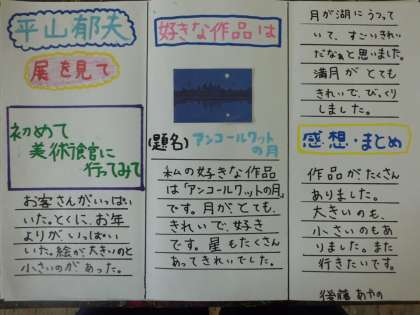 平山郁夫
展を見て
初めて
美術館に
行ってみて
お客さんがいっぱい
いた。とくに、お年
よりがいっぱい
いた。絵が大きいのと
小さいのがあった。
好きな作品は
(題名)アンコールワット
の月
私の好きな作品
は「アンコールワットの月」
です。月が、とても、
きれいで、好き
です。星もたくさん
あってきれいでした。
月が湖にうつって
いて、すごいきれい
だなぁと思いました。
満月がとても
きれいで、びっくり
しました。
感想・まとめ
作品がたくさん
ありました。
大きいのも、
小さいのもあ
りました。また
行きたいです。
後藤あやの